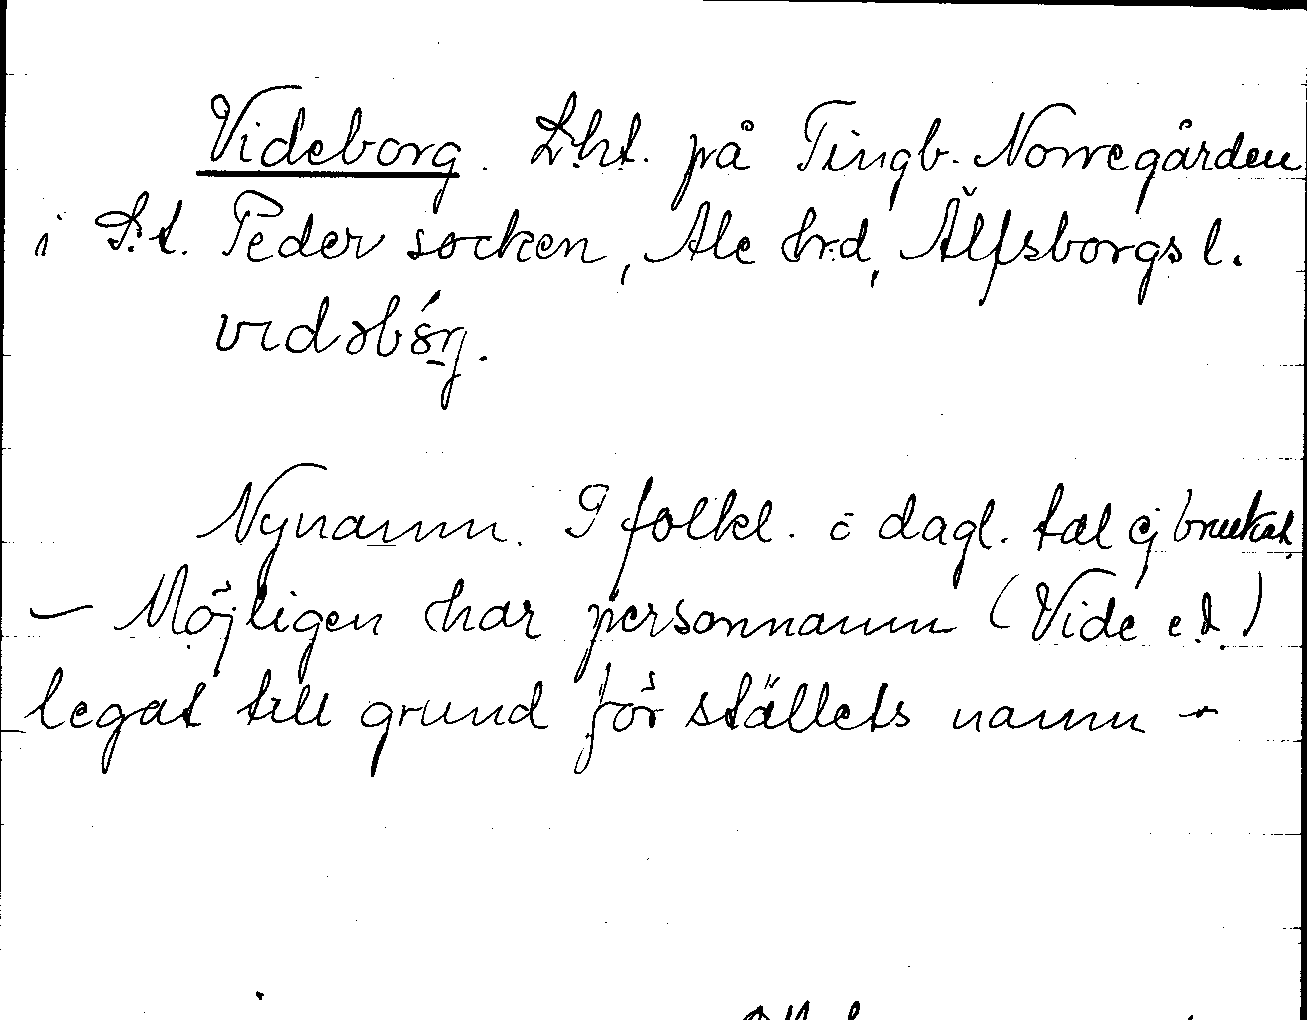 Videborg. Lht. på Tingb. Norregården
i S:t. Peder socken, Ale hrd, Älfsborgs l.
vidəbórg.
Nynamn. I folkl. o dagl. tal ej brukat.
— Möjligen har personnamn (Vide e.d.)
legat till grund för ställets namn –